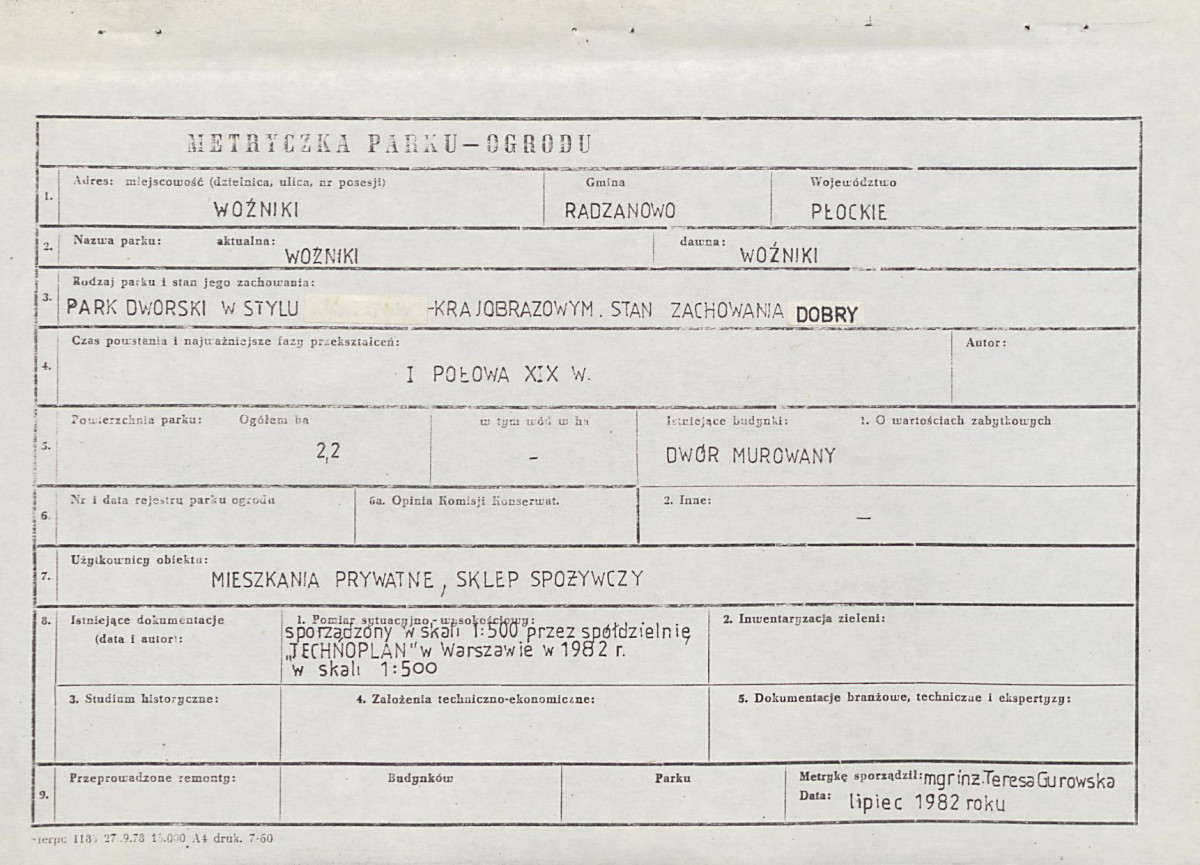 METRYCZKA PARKU-OGRODU
1. Adres: miejscowość (dzielnica, ulica, nr posesji) Gmina Województwo
WOŹNIKI RADZANOWO PŁOCKIE
2. Nazwa parku: aktualna: dawna:
WOŹNIKI WOŹNIKI
3. Rodzaj parku i stan jego zachowania:
PARK DWORSKI W STYLU -KRAJOBRAZOWYM. STAN ZACHOWANIA DOBRY
4. Czas powstania i najważniejsze fazy przekształceń: Autor:
I POŁOWA XIX W.
5. Powierzchnia parku: Ogółem ha w tym wód w ha Istniejące budynki: 1. O wartościach zabytkowych
2,2 – DWÓR MUROWANY
6. Nr i data rejestru parku ogrodu 6a. Opinia Komisji Konserwat. 2. Inne:
–
7. Użytkownicy obiektu:
MIESZKANIA PRYWATNE, SKLEP SPOŻYWCZY
8. Istniejące dokumentacje 1. Pomiar sytuacyjno-wysokościowy: 2. Inwentaryzacja zieleni:
(data i autor): sporządzony w skali 1:500 przez spółdzielnię
„TECHNOPLAN" w Warszawie w 1982 r.
w skali 1:500
3. Studium historyczne: 4. Założenia techniczno-ekonomiczne: 5. Dokumentacje branżowe, techniczne i ekspertyzy:
9. Przeprowadzone remonty: Budynków Parku Metrykę sporządził: mgr inż. Teresa Gurowska
Data: lipiec 1982 roku
27.9.78 A4 druk. 7-60